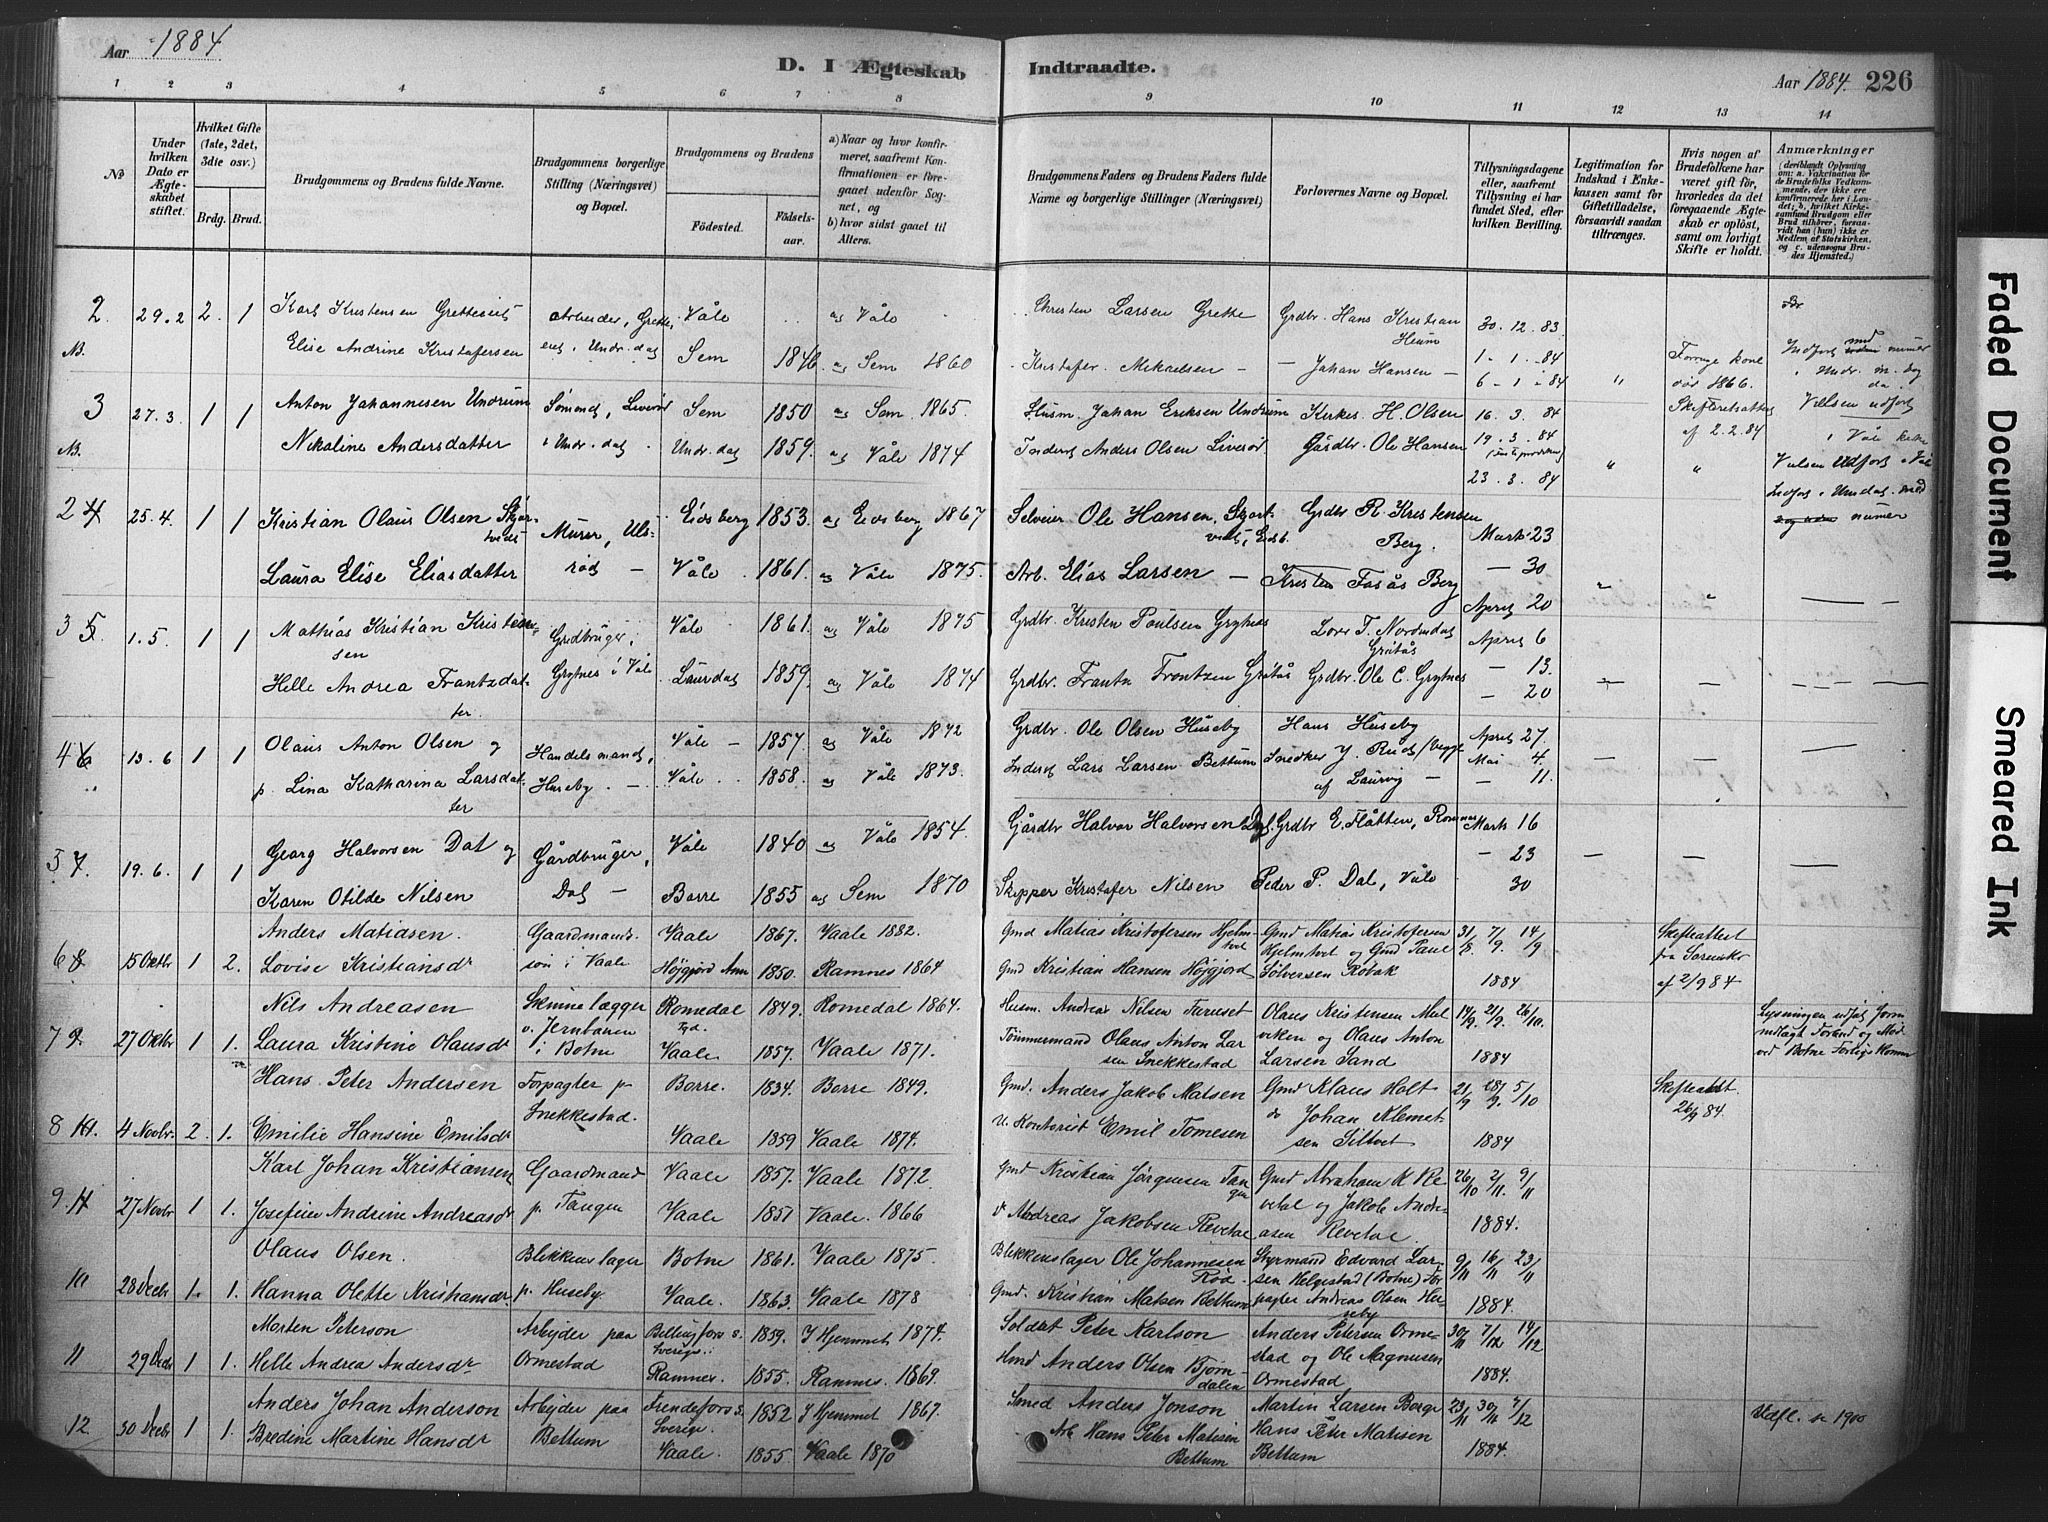 Aar 1884
D. I Ægteskab Indtraadte.
Aar 1884. 226
1 2 3 4 5 6 7 8 9 10 11 12 13 14
No
Under hvilken Dato er Ægteskabet stiftet.
Hvilket Gifte (1ste, 2det, 3die osv.)
Brdg. Brud.
Brudgommens og Brudens fulde Navne.
Brudgommens borgerlige Stilling (Næringsvei) og Bopæl.
Brudgommens og Brudens
Fødested.
Fødselsaar.
a) Naar og hvor konfirmeret, saafremt Konfirmationen er foregaaet udenfor Sognet, og
b) hvor sidst gaaet til Alters.
Brudgommens Faders og Brudens Faders fulde Navne og borgerlige Stillinger (Næringsvei)
Forlovernes Navne og Bopæl.
Tillysningsdagene eller, saafremt Tillysning ei har fundet Sted, efter hvilken Bevilling.
Legitimation for Indskud i Enkekassen samt for Giftetilladelse, forsaavidt saadan tiltrænges.
Hvis nogen af Brudefolkene har været gift før, hvorledes da det foregaaende Ægteskab er opløst, samt om lovligt Skifte er holdt.
Anmærkninger (deriblandt Oplysning om: a. Vakcination for Brudefolks Vedkommende, der ikke ere konfirmerede her i Landet; b, hvilket Kirkesamfund Brudgom eller Brud tilhører, forsaavidt han (hun) ikke er Medlem af Statskirken, og c. udensogns Brudes Hjemsted.)
2 29.2 2. 1 Karl Kristensen Gretteeiet Arbeider, Grette- Våle ag Våle Christen Larsen Grette Grdbr. Hans Kristian Heum 30.12.83
NB. Elise Andrine Kristofersen eiet i Undr.dal Sem 1846. ag Sem 1860 Kristofer Mikaelsen — Johan Hansen — 1-1-84 Forrige kone
6-1-84 " død 1866.
3 27.3. 1 1 Anton Johannesen Undrum Sømand, Liverød Sem 1850 ag Sem 1865. Husm. Johan Eriksen Undrum Kirkes. H. Olsen 16.3.84 Skifteretsattest
NB. Nikoline Andersdatter i Undr.dal. Undr.dal 1859. ag Våle 1874 Inderst Anders Olsen Liverød Gårdbr. Ole Hansen 19.3.84 af 2.2.84
23.3.84 " "
2 4 25.4. 1 1 Kristian Olaus Olsen Skjortvedt Murer, Uls- Eidsberg 1853. ag Eidsberg 1867 Selveier Ole Hansen, Skjortvedt, Eidsb. Grdbr R. Kristensen Berg. Marts 23
Laura Elise Eliasdatter rød — Våle 1861. ag Våle 1875. Arb. Elias Larsen — Kristen Fosås Berg — 30
April 20
3 5. 1.5. 1 1 Mathias Kristian Kristensen Grdbruger, Våle 1861. ag Våle 1875 Grdbr. Kristen Poulsen Grytnes Lors T. Nordndal April 6
Helle Andrea Frantzdatter. Grytnes i Våle Laurdal 1859. ag Våle 1874 Grdbr. Frantz Frantzen Gråtås Grdbr. Ole C. Grytnes — 13.
— 20
4 6 13.6 1 1 Olaus Anton Olsen og Handelsmand, Våle — 1857 ag Våle 1872 Grdbr. Ole Olsen Huseby Hans Huseby April 27
p. Lina Katharina Larsdatter Huseby. — Våle 1858. ag Våle 1873. Inderst Lars Larsen Bettum Snedker J. Rud af Laurvig — Mai 4. — 11.
5 7. 19.6. 1 1 Georg Halvorsen Dal og Gårdbruger, Våle 1840 ag Våle 1854. Gårdbr Halvor Halvorsen Dal. Grdbr E. Flåtten, Ramnes Marts 16
Karen Otilde Nilsen Dal — Borre 1855 ag Sem 1870 Skipper Kristofer Nilsen Peder P. Dal, Våle — 23
30
6 8. 15 Oktbr 1 2. Anders Matiasen. Gaardmands- Vaale 1867. Vaale 1882. Gmd Matias Kristofersen Hjelmtvet Gmd Matias Kristofersen 31/8. 7/9. 14/9 Skifteattest
Lovise Kristiansdr søn i Vaale Høgjord Ann 1850. Ramnes 1864 Gmd Kristian Hansen Høgjord Hjelmtvet og Gmd Paul Sølversen Robak 1884 fra Sorenskr af 2/9 84
7 9. 27 Oktbr 1 1. Nils Andreasen Skinnelægger Romedal 1849. Romedal 1864. Husm. Andreas Nilsen Furuset Olaus Kristensen Mel- 14/9. 21/9. 26/10.
Laura Kristine Olausdr v. Jernbanen i Botne Vaale. 1857. Vaale 1871. Tømmermand Olaus Anton Larsen Snekkestad viken og Olaus Anton Larsen Sand 1884
8 10. 4 Novbr. 2. 1. Hans Peter Andersen Forpagter p Borre. 1834. Borre 1849. Gmd. Anders Jakob Matsen Gmd Klaus Holt 21/9 28/9. 5/10 Skifteattest
Emilie Hansine Emilsdr Snekkestad. Vaale 1859 Vaale 1874. U. Kontorist Emil Tomesen do Johan Klemetsen Siltvet 1884 26/9 84.
9. 11 27 Novbr 1 1. Karl Johan Kristiansen Gaardmand Vaale 1857. Vaale 1872. Gmd Kristian Jørgensen Tangen Gmd Abraham K Re- 26/10 2/11. 9/11
Josefine Andrine Andreasdr p. Tangen Vaale. 1851 Vaale. 1866 Andreas Jakobsen Revetal vetal og Jakob Andreasen Revetal. 1884.
10 28 Decbr 1. 1. Olaus Olsen. Blikkenslager Botne 1861. Vaale 1875. Blikkenslager Ole Johannesen Rød. Styrmand Edvard Lar- 9/11 16/11 23/11
Hanna Olette Kristiansdr. p. Huseby Vaale. 1863. Vaale 1878 Gmd. Kristian Matsen Bettum sen Helgestad (Botne) Forpagter Andreas Olsen Huseby 1884.
11 29 Decbr 1 1. Morten Peterson Arbejder paa Billingsfors S. Sverige. 1859. I Hjemmet 1874. Soldat Peter Karlson Anders Petersen Orme- 30/11 7/12 14/12
Helle Andrea Andersdr Ormestad Ramnes. 1855. Ramnes. 1869. Hmd Anders Olsen Bjørndalen stad og Ole Magnusen Ormestad 1884.
12. 30 Decbr 1 1. Anders Johan Anderson Arbejder paa Frendefors S. Sverige. 1852 I Hjemmet 1867. Smed Anders Jonson Martin Larsen Berge 23/11 30/11 7/12 Udfl. se 1900
Bredine Martine Hansdr Bettum Vaale. 1855 Vaale 1870 Arb Hans Peter Matisen Bettum Hans Peter Matisen Bettum 1884.
Faded Document
Smeared Ink